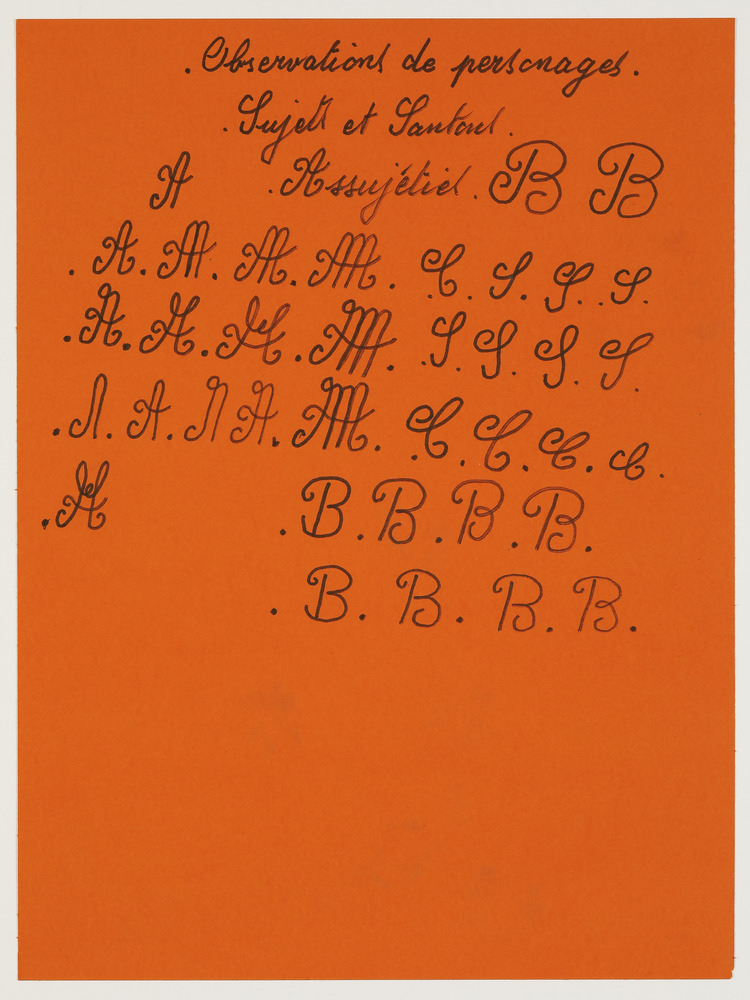 .Observations de personages.
.Sujets et Santons.
A .Assujéties. B B
.A.A.A.A. C.S.S.S.
.A.A.A.A. .S.S.S.S.
.A.A.A.A.A. C.C.C.C.
.A .B.B.B.B.
.B.B.B.B.